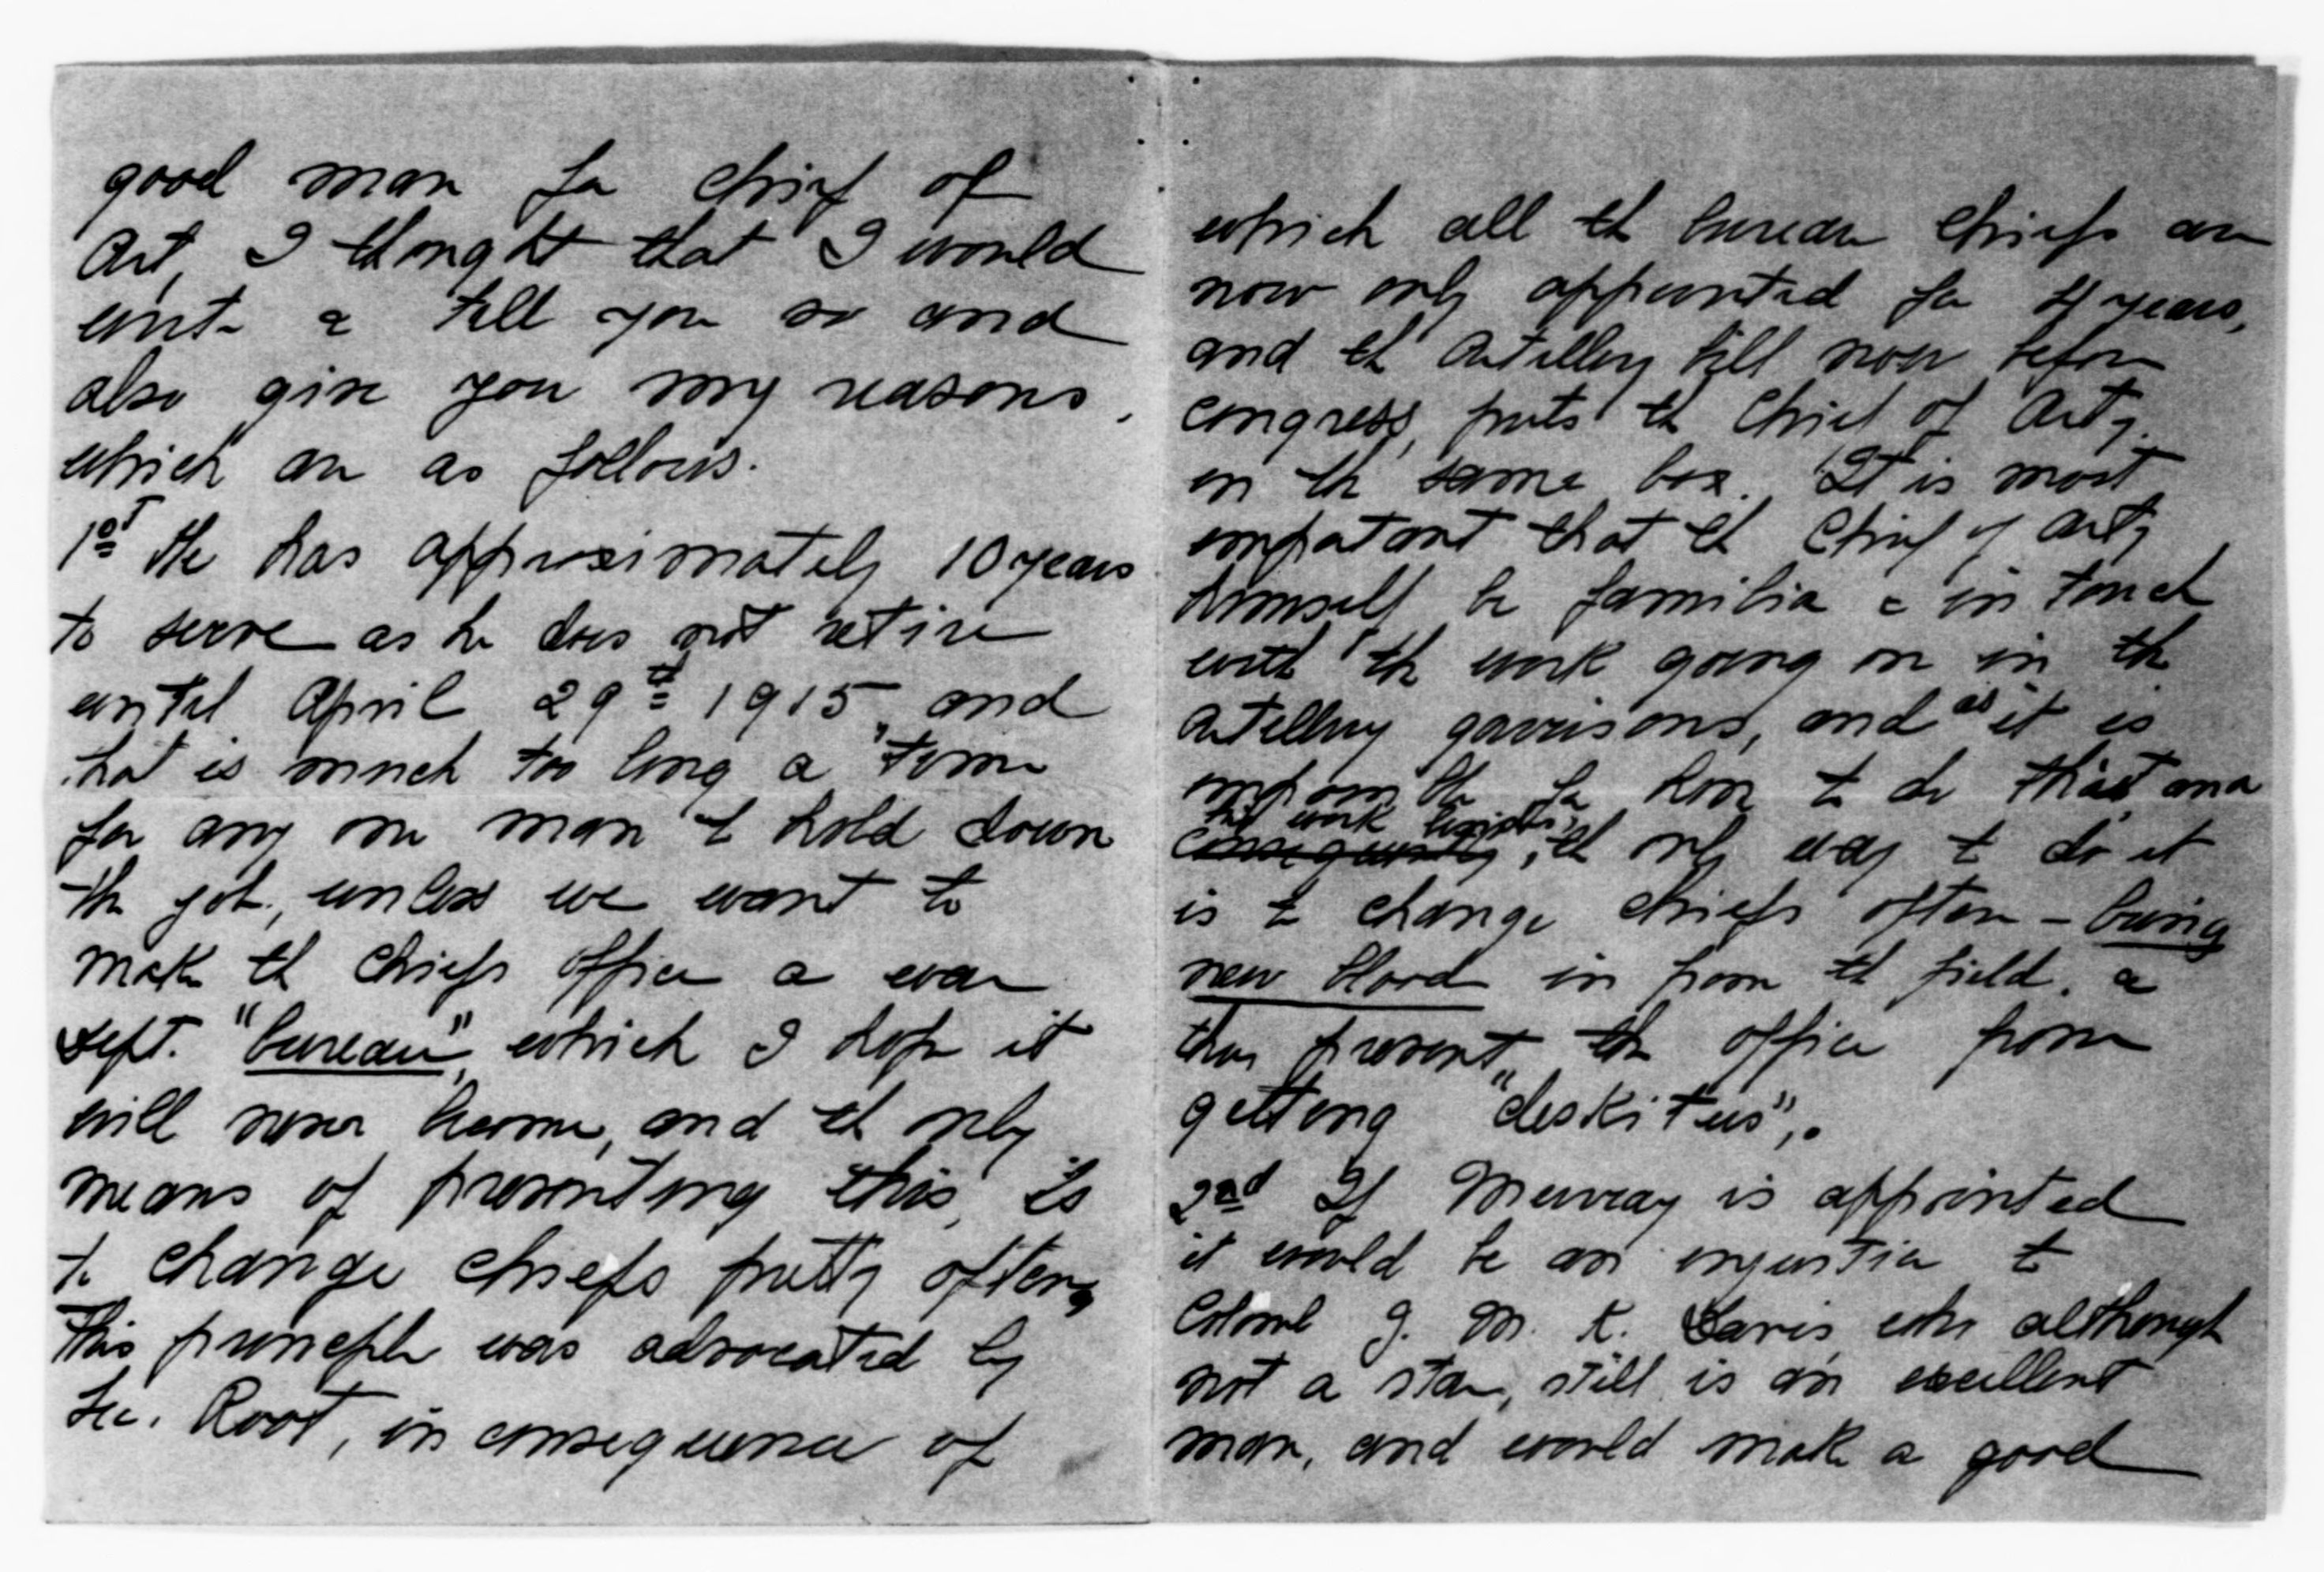 good man for chief of
Art, I thought that I would
write & tell you so and
also give you my reasons,
which are as follows.
1st He has approximately 10 years
to serve as he does not retire
until April 29th 1915, and
that is much too long a time
for any one man to hold down
the job, unless we want to
make the chiefs office a war
dept. "bureau", which I hope it
will never become, and the only
means of preventing this, is
to change chiefs pretty often,
this principle was advocated by
Sec. Root, in consequence of
which all the bureau chiefs are
now only appointed for 4 years,
and the Artillery bill now before
congress, puts the Chief of Arty.
in the same box. It is most
important that the Chief of Arty
himself be familiar & in touch
with the work going on in the
Artillery garrisons, and as it is
impossible for him to do this and
his work besides,
consequently, the only way to do it
is to change chiefs often – bring
new blood in from the field. &
thus prevent the office from
getting "deskitus",.
2nd If Murray is appointed
it would be an injustice to
Colonel J. M. K. Davis, who although
not a star, still is an excellent
man, and would make a good